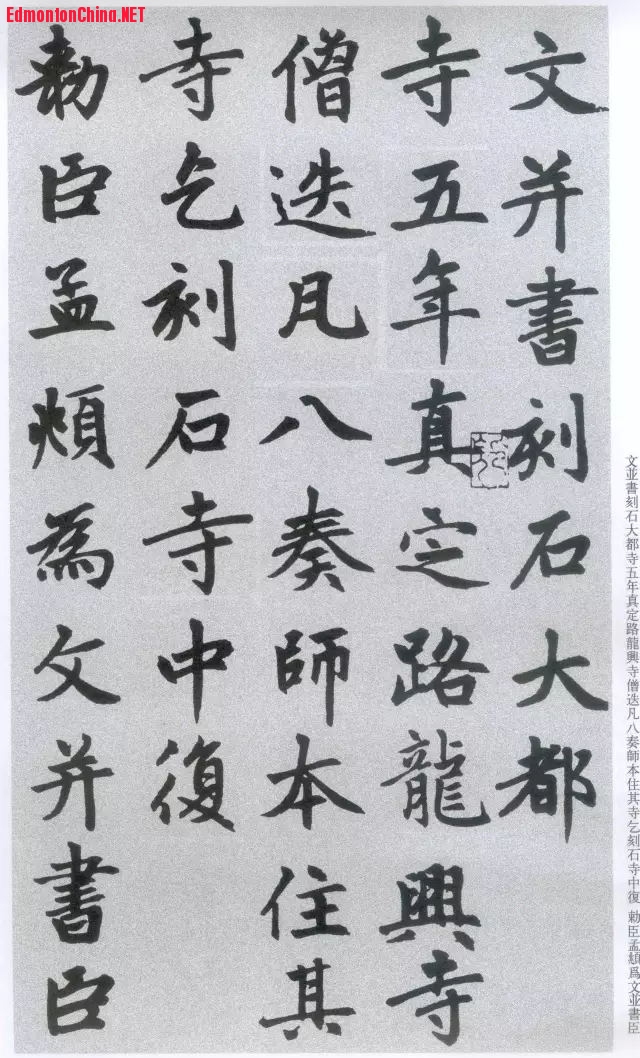 EdmontonChina.NET
文并書刻石大都
寺五年真定路龍興寺
僧迭凡八奏師本住其
寺乞刻石寺中復
勅臣孟頫為文并書臣
文並書刻石大都寺五年真定路龍興寺僧迭凡八奏師本住其寺乞刻石寺中復 勅臣孟頫爲文並書臣